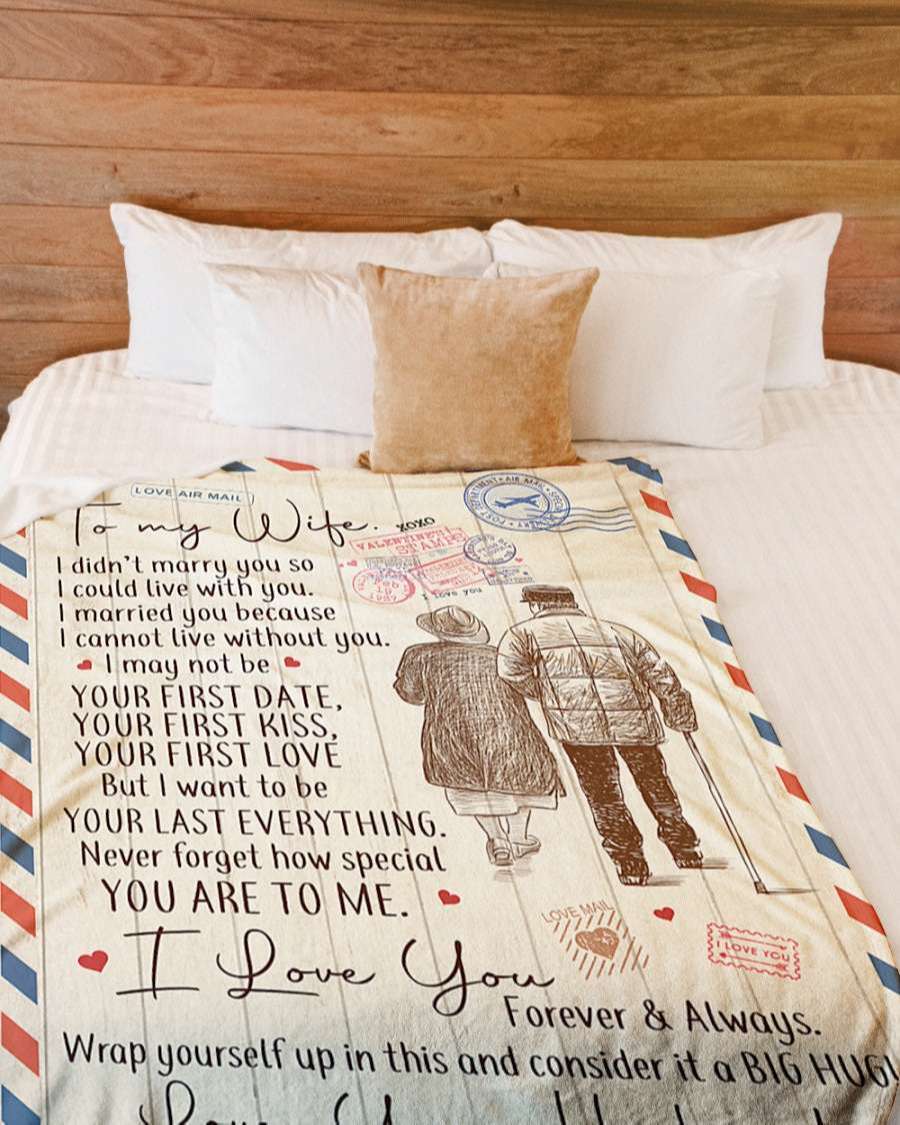 LOVE AIR MAIL
To my Wife. XOXO
POST DEPARTMENT • AIR MAIL •
VALENTINE
STAMPS
I LOVE YOU
I didn't marry you so
I could live with you.
I married you because
I cannot live without you.
I may not be
YOUR FIRST DATE,
YOUR FIRST KISS,
YOUR FIRST LOVE
But I want to be
YOUR LAST EVERYTHING.
Never forget how special
YOU ARE TO ME.
LOVE MAIL
I LOVE YOU
I Love You
Forever & Always.
Wrap yourself up in this and consider it a BIG HUG!